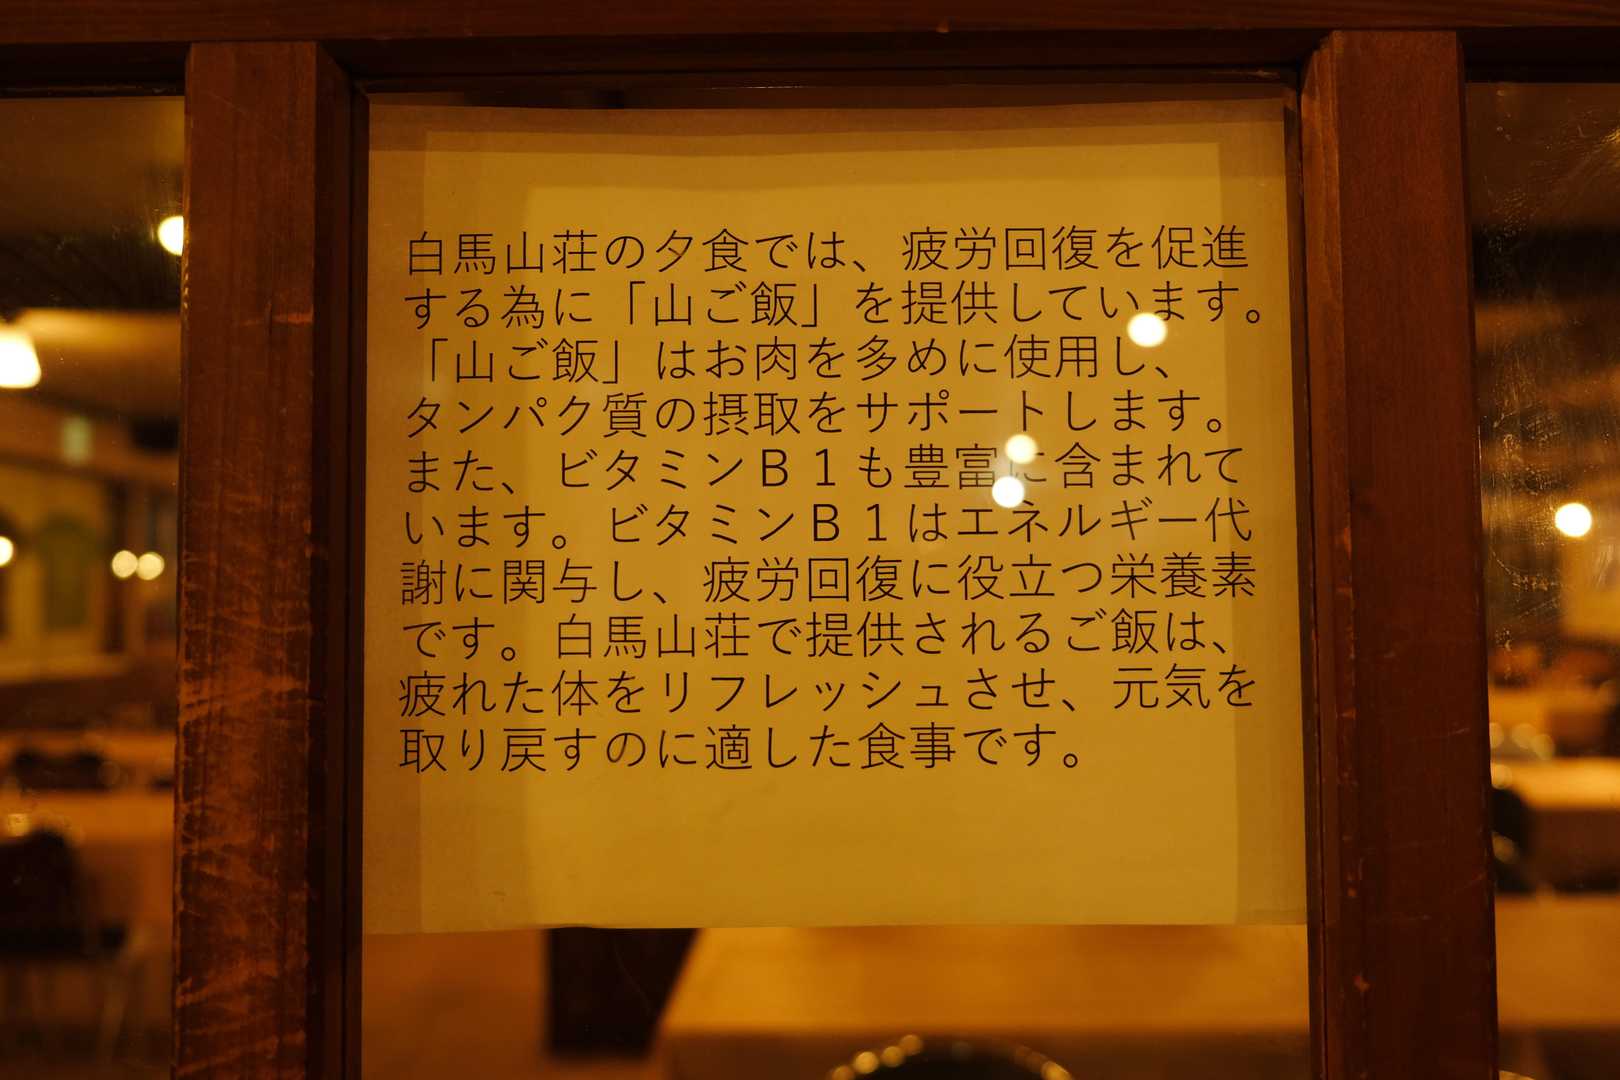 白馬山荘の夕食では、疲労回復を促進
する為に「山ご飯」を提供しています。
「山ご飯」はお肉を多めに使用し、
タンパク質の摂取をサポートします。
また、ビタミンＢ１も豊富に含まれて
います。ビタミンＢ１はエネルギー代
謝に関与し、疲労回復に役立つ栄養素
です。白馬山荘で提供されるご飯は、
疲れた体をリフレッシュさせ、元気を
取り戻すのに適した食事です。